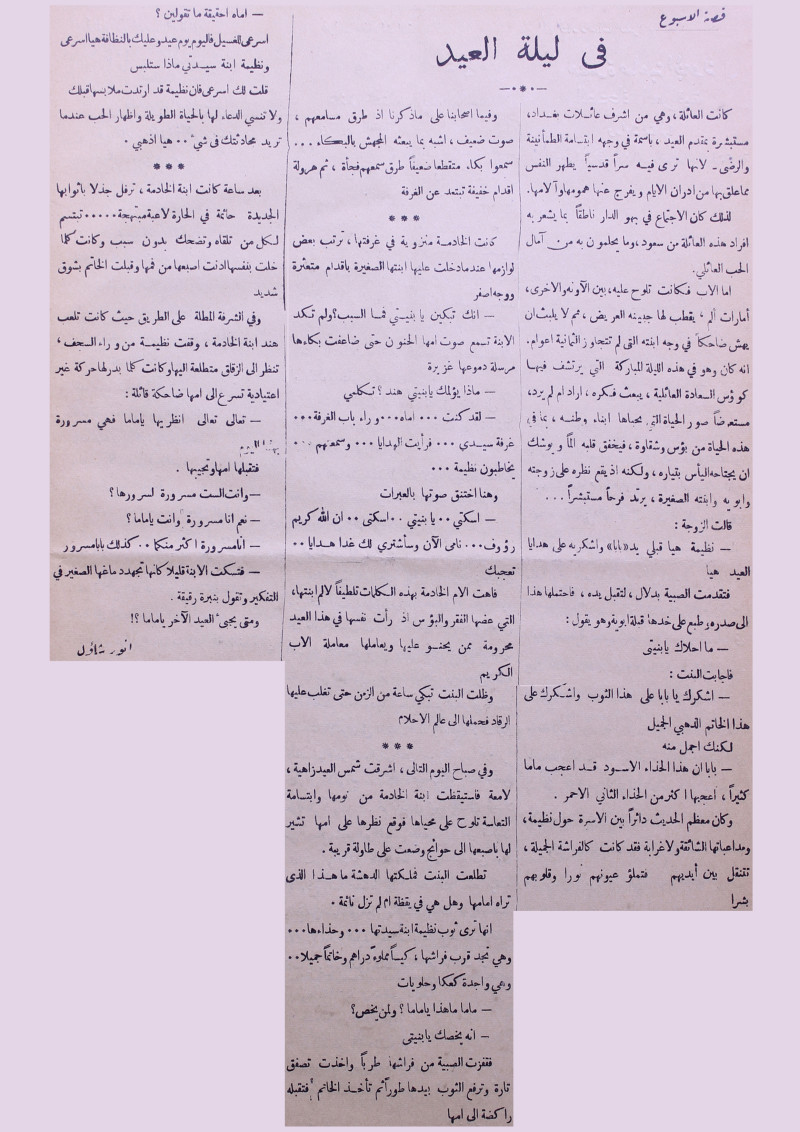 قصة الاسبوع
فى ليلة العيد
كانت العائلة ، وهي من اشرف عائلات بغداد،
مستبشرة بمقدم العيد ، باسمة في وجهه ابتسامة الطمأنينة
والرضى ـ لانها ترى فيه سراً قدسياً يطهر النفس
مما علق بها من ادران الايام ويفرج عنها همومها وآلامها.
لذلك كان الاجتماع في بهو الدار ناطقاً بما يشعر به
افراد هذه العائلة من سعود، وما يحلمون به من آمال
الحب العائلي.
اما الاب فكانت تلوح عليه، بين الآونه والاخرى،
أمارات ألم ، يقطب لها جبينه العريض ، ثم لا يلبث ان
يهش ضاحكاً في وجه ابنته التى لم تتجاوز الثمانية اعوام.
انه كان وهو في هذه الليلة المباركة التي يرتشف فيها
كؤس السعادة العائلية ، يبعث فكره ، اراد ام لم يرد،
مستعرضاً صور الحياة التي يحياها ابناء وطنه ، بما في
هذه الحياة من بؤس وشقاوة ، فيخفق قلبه الماً ويوشك
ان يجتاحه اليأس بتياره ، ولكنه اذ يقع نظره على زوجته
وابويه وابنته الصغيرة ، يرتد فرحاً مستبشراً ...
قالت الزوجة :
— نظيمة هيا قبلي يد «بابا» واشكريه على هدايا
العيد هيا
فتقدمت الصبية بدلال ، لتقبل يده ، فاحتملها هذا
الى صدره، وطبع على خدها قبلة ابوية وهو يقول :
— ما احلاك يابنيتى
فاجابت البنت :
— اشكرك يا بابا على هذا الثوب واشكرك على
هذا الخاتم الذهبي الجميل
لكنك اجمل منه
— بابا ان هذا الحذاء الاسود قد اعجب ماما
كثيراً ، أعجبها اكثر من الحذاء الثاني الاحمر .
وكان معظم الحديث دائراً بين الاسرة حول نظيمة ،
ومداعباتها الشائقة ولا غرابة فقد كانت كالفراشة الجميلة ،
تتنقل بين أيديهم فتملؤ عيونهم نورا وقلوبهم
بشرا
وفيما اصحابنا على ما ذكرنا اذ طرق مسامعهم ،
صوت ضعيف ، اشبه بما يبعثه المجهش بالبكاء ...
سمعوا بكاء متقطعا ضعيفاً طرق سمعهم فجأة ، ثم هرولة
اقدام خفيفة تبتعد عن الغرفة
***
كانت الخادمة منزوية في غرفتها ، ترتب بعض
لوازمها عندما دخلت عليها ابنتها الصغيرة باقدام متعثرة
ووجه اصفر
— انك تبكين يا بنيتي فما السبب؟ ولم تكد
الابنة تسمع صوت امها الحنون حتى ضاعفت بكاءها
مرسلة دموعها غزيرة
— ماذا يؤلمك يابنيتي هند ؟ تكلمي
— لقد كنت ... اماه ... وراء باب الغرفة ...
غرفة سيدي ... فرأيت الهدايا ... وسمعتهم ...
يخاطبون نظيمة ...
وهنا اختنق صوتها بالعبرات
— اسكتي .. يا بنيتي .. اسكتى .. ان الله كريم
رؤوف... نامى الآن وسأشتري لك غدا هدايا ..
تعجبك
فاهت الام الخادمة بهذه الكلمات تلطيفاً لألم ابنتها،
التي عضها الفقر والبؤس اذ رأت نفسها في هذا العيد
محرومة ممن يحنو عليها ويعاملها معاملة الاب
الكريم
وظلت البنت تبكي ساعة من الزمن حتى تغلب عليها
الرقاد فحملها الى عالم الاحلام
***
وفي صباح اليوم التالى ، اشرقت شمس العيد زاهية ،
لامعة فاستيقظت ابنة الخادمة من نومها وابتسامة
التعاسة تلوح على محياها فوقع نظرها على امها تشير
لها باصبعها الى حوائج وضعت على طاولة قريبة .
تطلعت البنت فملكتها الدهشة ما هذا الذى
تراه امامها وهل هي في يقظة ام لم تزل نائمة .
انها ترى ثوب نظيمة ابنة سيدتها ... وحذاءها ...
وهي تجد قرب فراشها ، كيساً مملوءً دراهم وخاتماً جميلا ..
وهي واجدة كعكا وحلويات
— ماما ما هذا ياماما ؟ ولمن يخص؟
— انه يخصك يابنيتى
فقفزت الصبية من فراشها طرباً واخذت تصفق
تارة وترفع الثوب بيدها طوراً ثم تأخذ الخاتم فتقبله
راكضة الى امها
— اماه احقيقة ما تقولين ؟
اسرعى للغسيل فاليوم يوم عيد وعليك بالنظافة هيا اسرعى
ونظيمة ابنة سيدتي ماذا ستلبس
قلت لك اسرعى فان نظيمة قد ارتدت ملابسها قبلك
ولا تنسي الدعاء لها بالحياة الطويلة واظهار الحب عندما
تريد محادثتك فى شيء .. هيا اذهبي .
***
بعد ساعة كانت ابنة الخادمة ، ترفل جذلا بأثوابها
الجديدة حائمة في الحارة لاعبة مبتهجة ..... تبتسم
لكل من تلقاه وتضحك بدون سبب وكانت كلما
خلت بنفسها ادنت اصبعها من فمها وقبلت الخاتم بشوق
شديد
وفي الشرفة المطلة على الطريق حيث كانت تلعب
هند ابنة الخادمة ، وقفت نظيمة من وراء السجف ،
تنظر الى الزقاق متطلعة اليها وكانت كلما بدر لها حركة غير
اعتيادية تسرع الى امها ضاحكة قائلة :
— تعالى تعالى انظريها ياماما فهي مسرورة
بهذا اليوم
فتقبلها امها وتجيبها .
— وانت الست مسرورة لسرورها ؟
— نعم انا مسرورة وانت ياماما ؟
— انا مسرورة اكثر منكما .. كذلك بابا مسرور
— فتسكت الابنة قليلا كأنها تجهد دماغها الصغير في
التفكير وتقول بنبرة رقيقة .
ومتى يجيىء العيد الآخر ياماما ؟!
انور شاؤل